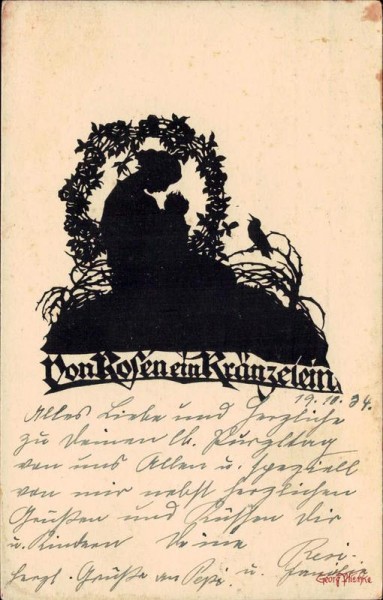 Von Rosen ein Kränzelein
19.10.34.
Alles Liebe und Herzliche
zu Deinem lb. Purzltag
von uns Allen u. speziell
von mir nebst herzlichen
Grüßen und Küssen Dir
u. Kindern Deine
Resi
herzl. Grüße an Pepi. u. Familie
Georg Plischke